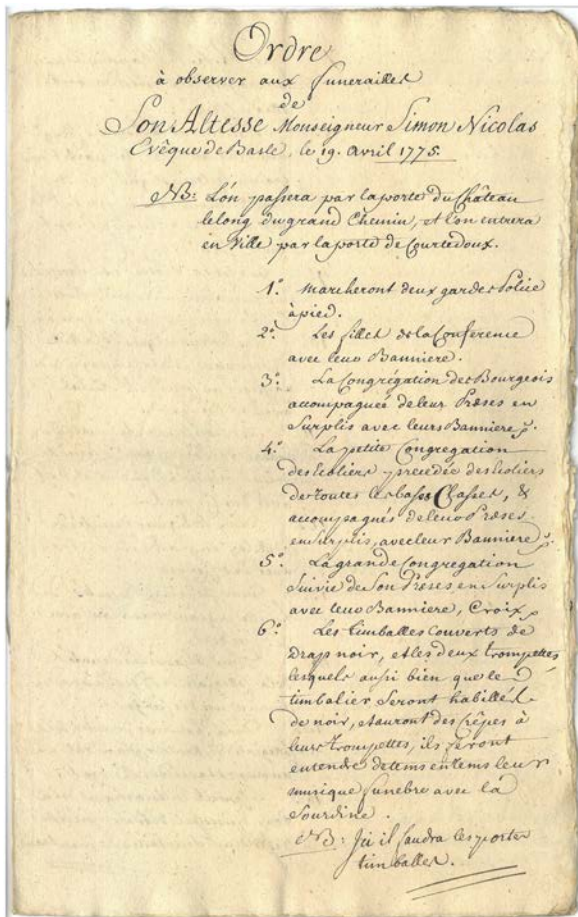 Ordre
à observer aux funerailles
de
Son Altesse Monseigneur Simon Nicolas
Evêque de Basle, le 19. avril 1775.
NB: L'on passera par la porte du Château
le long du grand Chemin, et l'on entrera
en Ville par la porte de Courtedoux.
1.° marcheront deux gardes Police
à pied.
2.° Les filles de la Conference
avec leur Banniere.
3.° La Congrégation des Bourgeois
accompagneé de leur Præses en
Surplis avec leurs Banniere
4.° La petite Congregation
des Ecoliers precedée des Ecoliers
de toutes les basses Classes, &
accompagnés de leur Præses
en Surplis, avec leur Banniere
5.° La grande Congregation
Suivie de Son Præses en Surplis
avec leur Banniere, Croix
6.° Les timballes couverts de
Drap noir, et les deux trompettes
lesquels aussi bien que le
timbalier Seront habillés
de noir, et auront des crêpes à
leurs trompettes, ils feront
entendre de tems en tems leur
musique funebre avec la
Sourdine.
NB: Ici il faudra les porter
timballes.